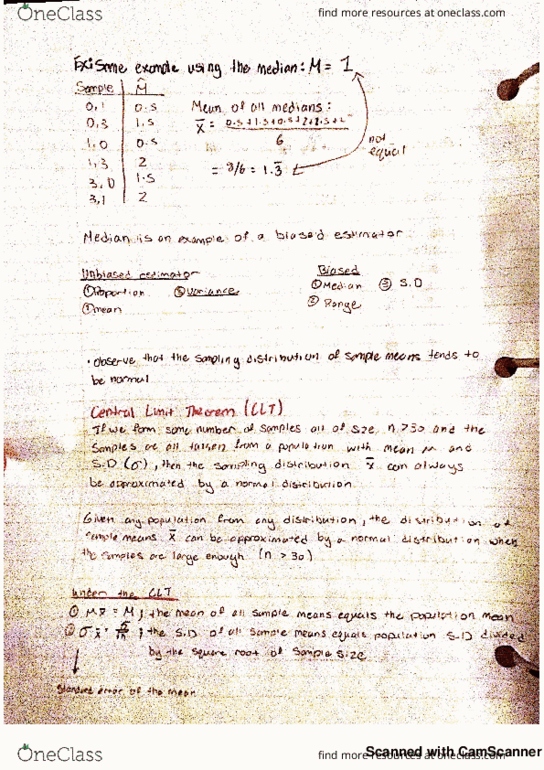 OneClass
find more resources at oneclass.com
Ex: Same example using the median: M = 1
Sample M̂
0,1 0.5
0,3 1.5
1,0 0.5
1,3 2
3,0 1.5
3,1 2
Mean of all medians:
x̄ = 0.5+1.5+0.5+2+1.5+2
6
= 8/6 = 1.3̄
not equal
Median is an example of a biased estimator
Unbiased estimator
① Proportion ③ Variance
② mean
Biased
① Median ③ S.D
② Range
• observe that the sampling distribution of sample means tends to
be normal
Central Limit Theorem (CLT)
If we form some number of samples all of size, n >30 and the
samples are all taken from a population with mean μ and
S.D (σ), then the sampling distribution x̄ can always
be approximated by a normal distribution
Given any population from any distribution, the distribution of
sample means x̄ can be approximated by a normal distribution when
the samples are large enough (n > 30)
Under the CLT
① μx̄ = μ ; the mean of all sample means equals the population mean
② σx̄ = σ/√n ; the S.D of all sample means equals population S.D divided
by the square root of sample size
Standard error of the mean
OneClass
find more resources at oneclass.com
Scanned with CamScanner